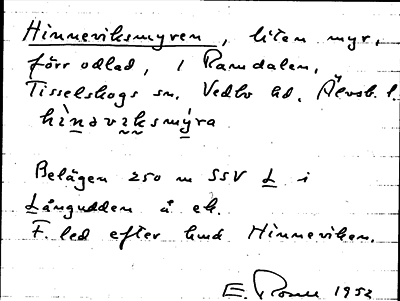 Hinneviksmyren, liten myr,
förr odlad, i Ramdalen,
Tisselskogs sn. Vedbo hd. Älvsb. l.
hìnəvìksmy̌ra
Belägen 250 m SSV L i
Långudden å ek.
F. led efter hmd Hinneviken.
E. 1952